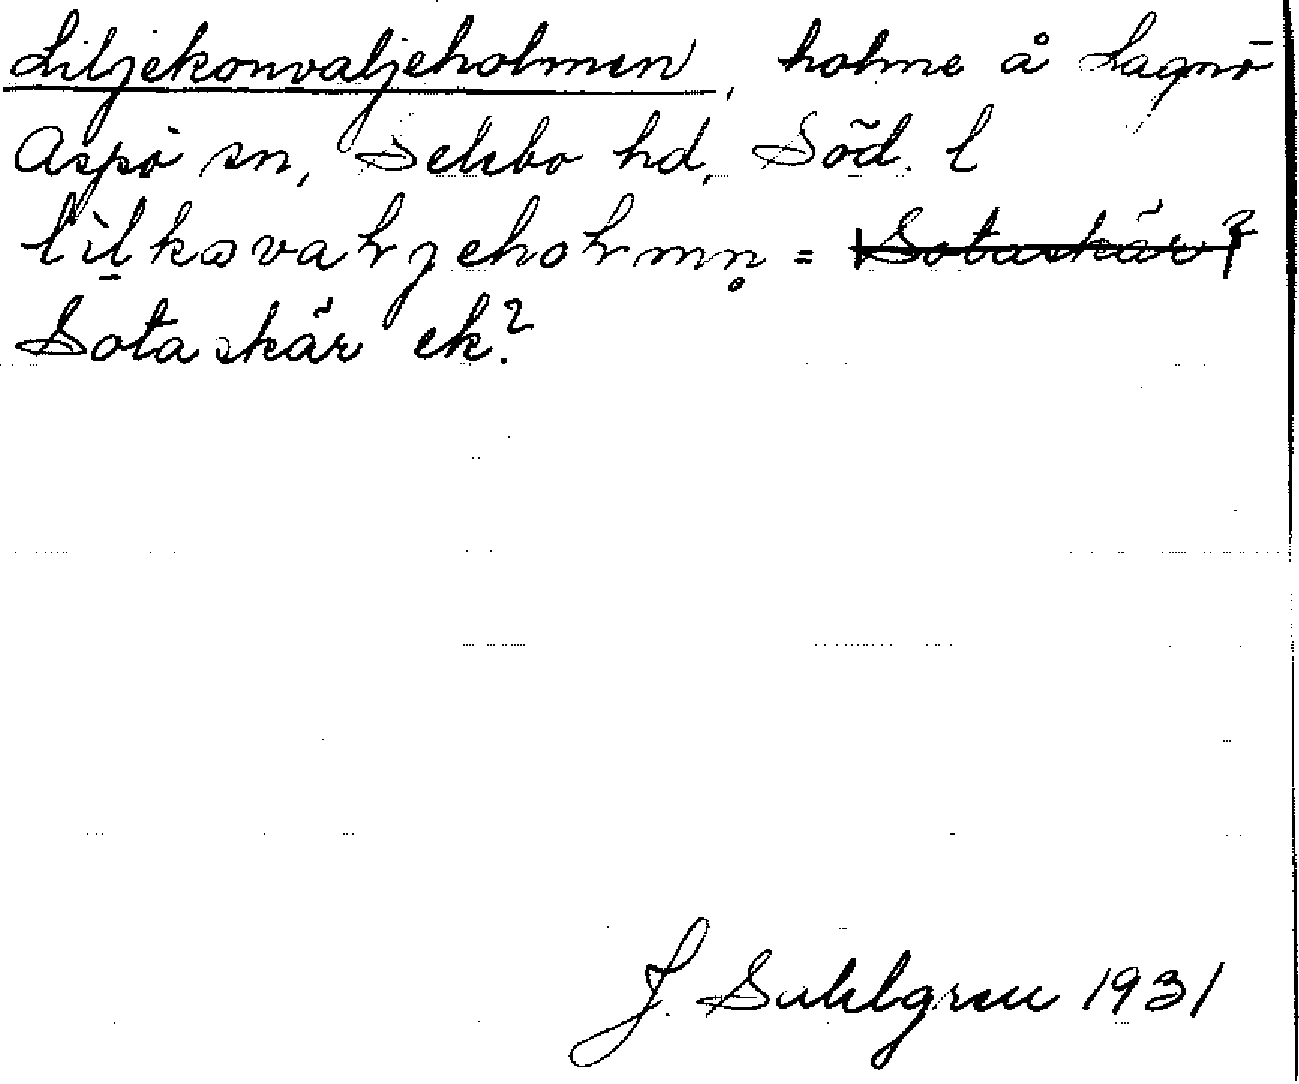 Liljekonvaljeholmen, holme å Lagnö
Aspö sn, Selebo hd, Söd. l
Sotaskär ek?
J. Sahlgren 1931